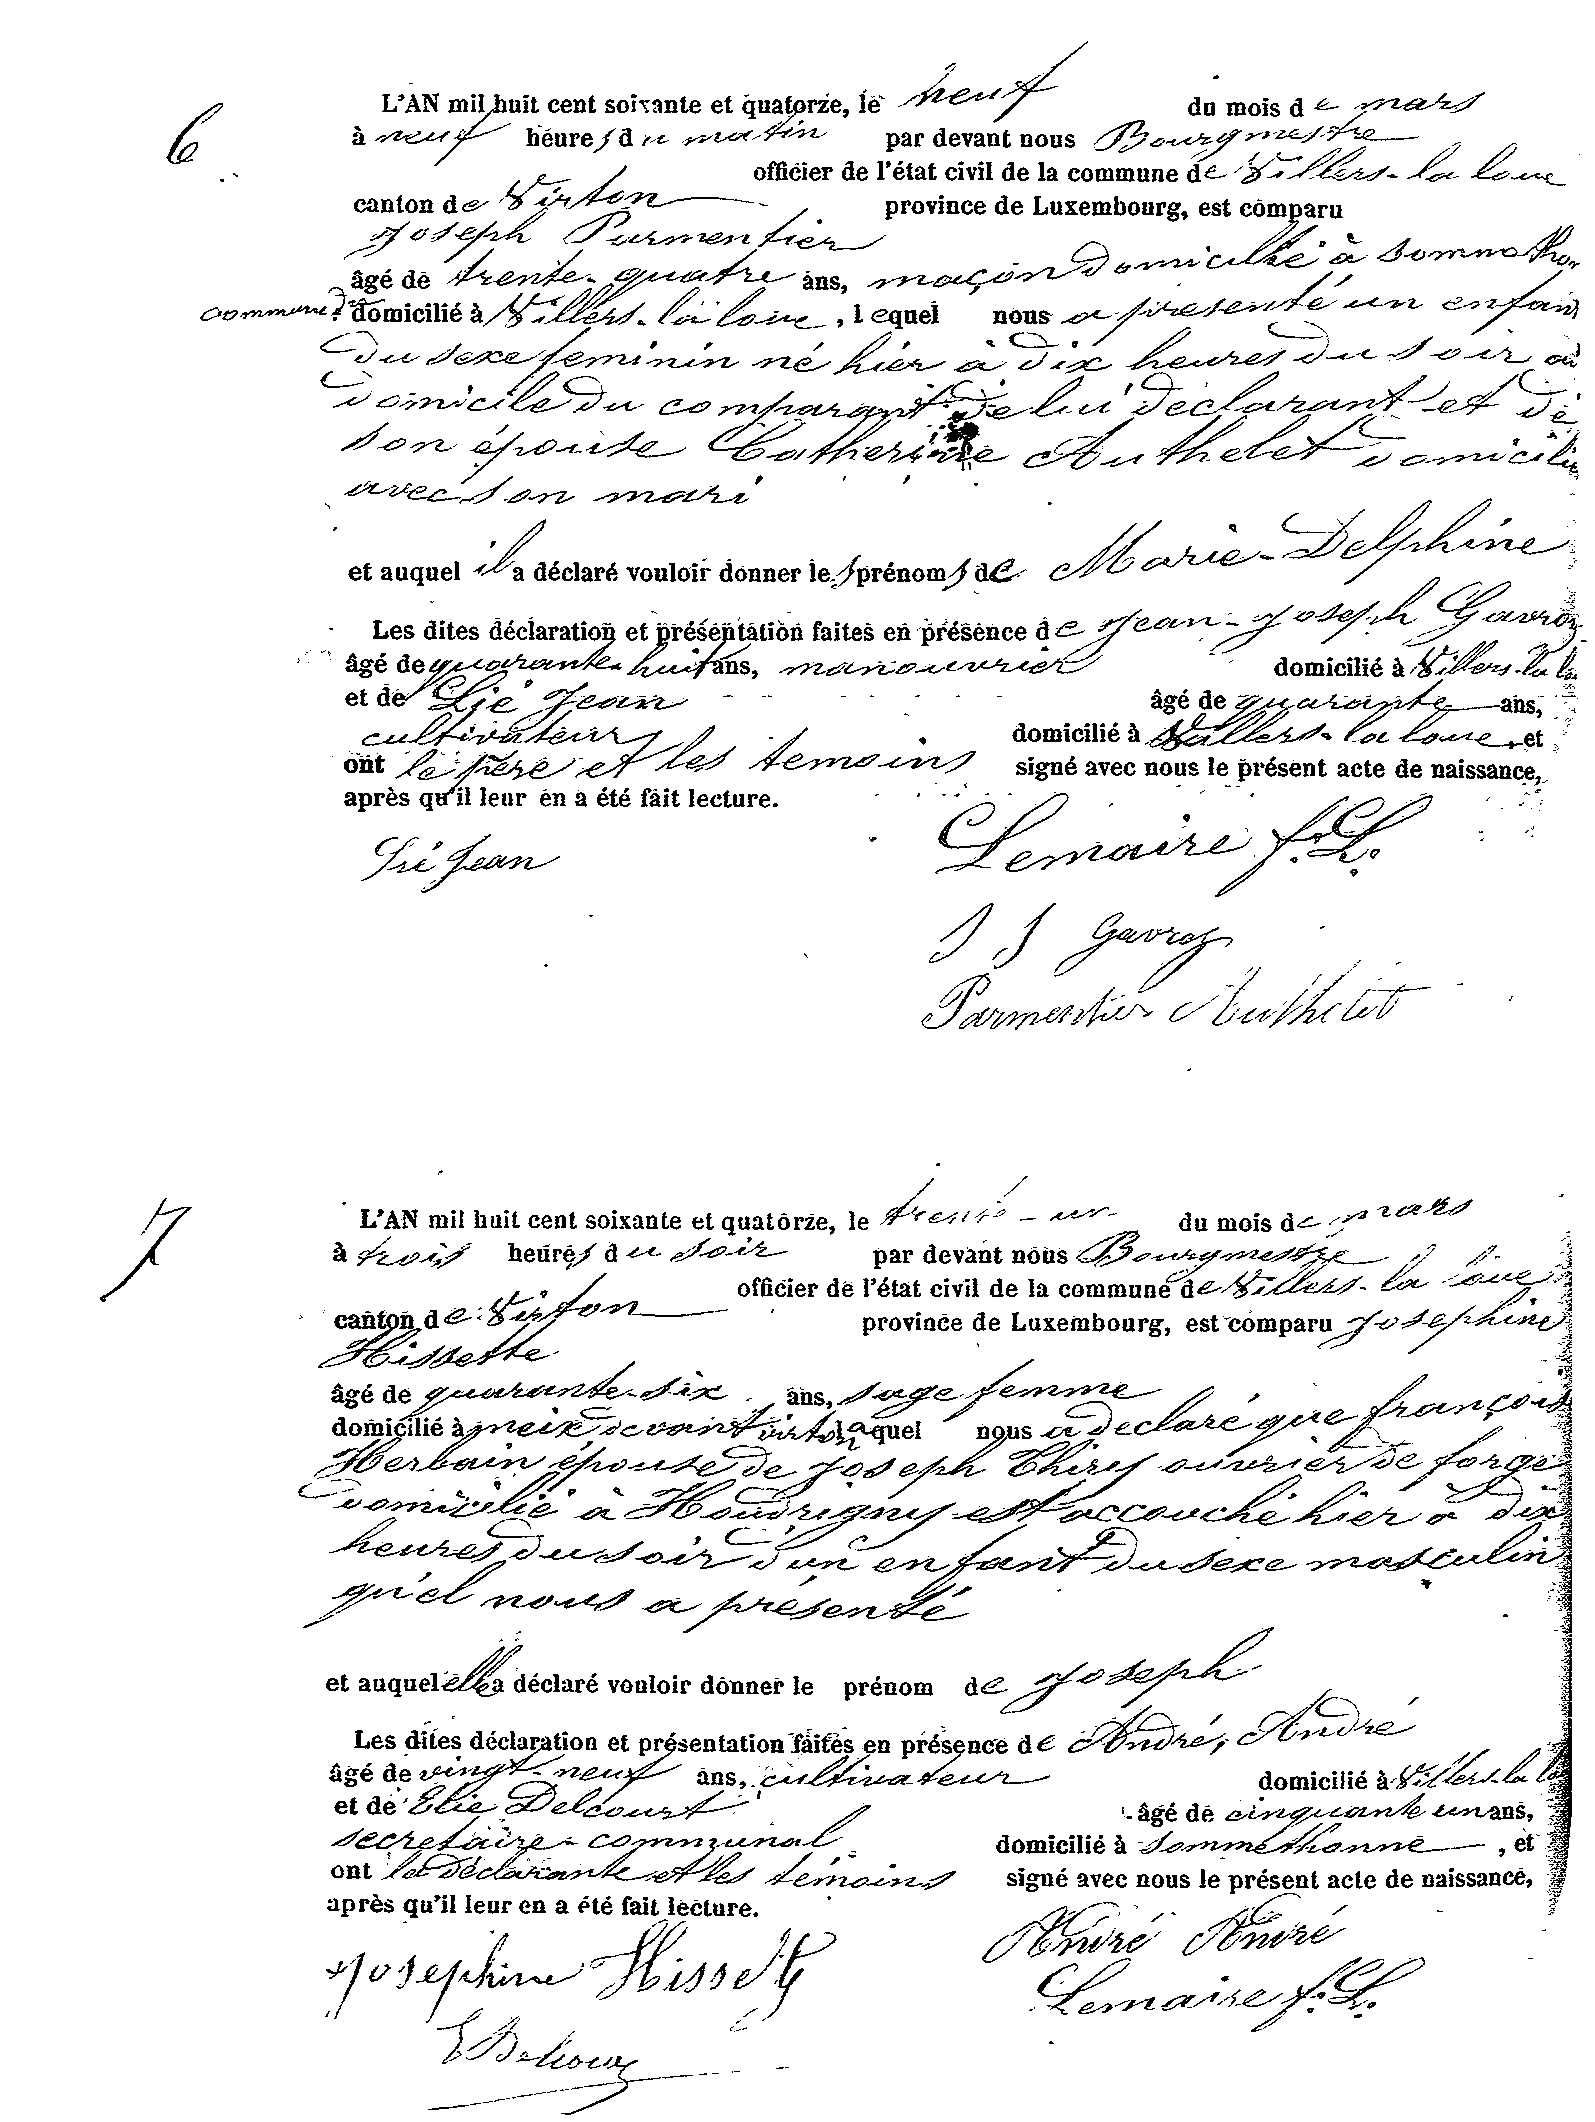 6
L'AN mil huit cent soixante et quatorze, le neuf du mois de mars
à neuf heures du matin par devant nous Bourgmestre
officier de l'état civil de la commune de Villers-la loue
canton de Virton province de Luxembourg, est comparu
Joseph Parmentier
âgé de trente-quatre ans, maçon domicilié à Sommethon
commune de domicilié à Villers-la loue, lequel nous a presenté un enfan
du sexe feminin né hier à dix heures du soir au
domicile du comparant de lui déclarant et de
son épouse Catherine Authelet domicilié
avec son mari
et auquel il a déclaré vouloir donner les prénoms de Marie-Delphine
Les dites déclaration et présentation faites en présence de Jean-Joseph Gavroy
âgé de quarante-huit ans, manouvrier domicilié à Villers-la lo
et de Lié Jean âgé de quarante ans,
cultivateur domicilié à Villers-la loue, et
ont le père et les temoins signé avec nous le présent acte de naissance,
après qu'il leur en a été fait lecture.
Lié Jean Lemaire f. L.
J J Gavroy
Parmentier Authelet
7
L'AN mil huit cent soixante et quatorze, le trente-un du mois de mars
à trois heures du soir par devant nous Bourgmestre
officier de l'état civil de la commune de Villers-la loue
canton de Virton province de Luxembourg, est comparu Josephine
Hissette
âgé de quarante-six ans, sage femme
domicilié à meix devant virton laquel nous a declaré que françois
Herbain épouse de Joseph Thiry ouvrier de forge
domicilié à Houdrigny est accouché hier à dix
heures du soir d'un enfant du sexe masculin
qu'el nous a présenté
et auquel elle a déclaré vouloir donner le prénom de Joseph
Les dites déclaration et présentation faites en présence de André, André
âgé de vingt-neuf ans, cultivateur domicilié à Villers-la lo
et de Elie Delcourt âgé de cinquante un ans,
secretaire-communal domicilié à Sommethonne, et
ont la déclarante et les témoins signé avec nous le présent acte de naissance,
après qu'il leur en a été fait lecture.
Josephine Hissette André André
Lemaire f. L.
E Delcourt